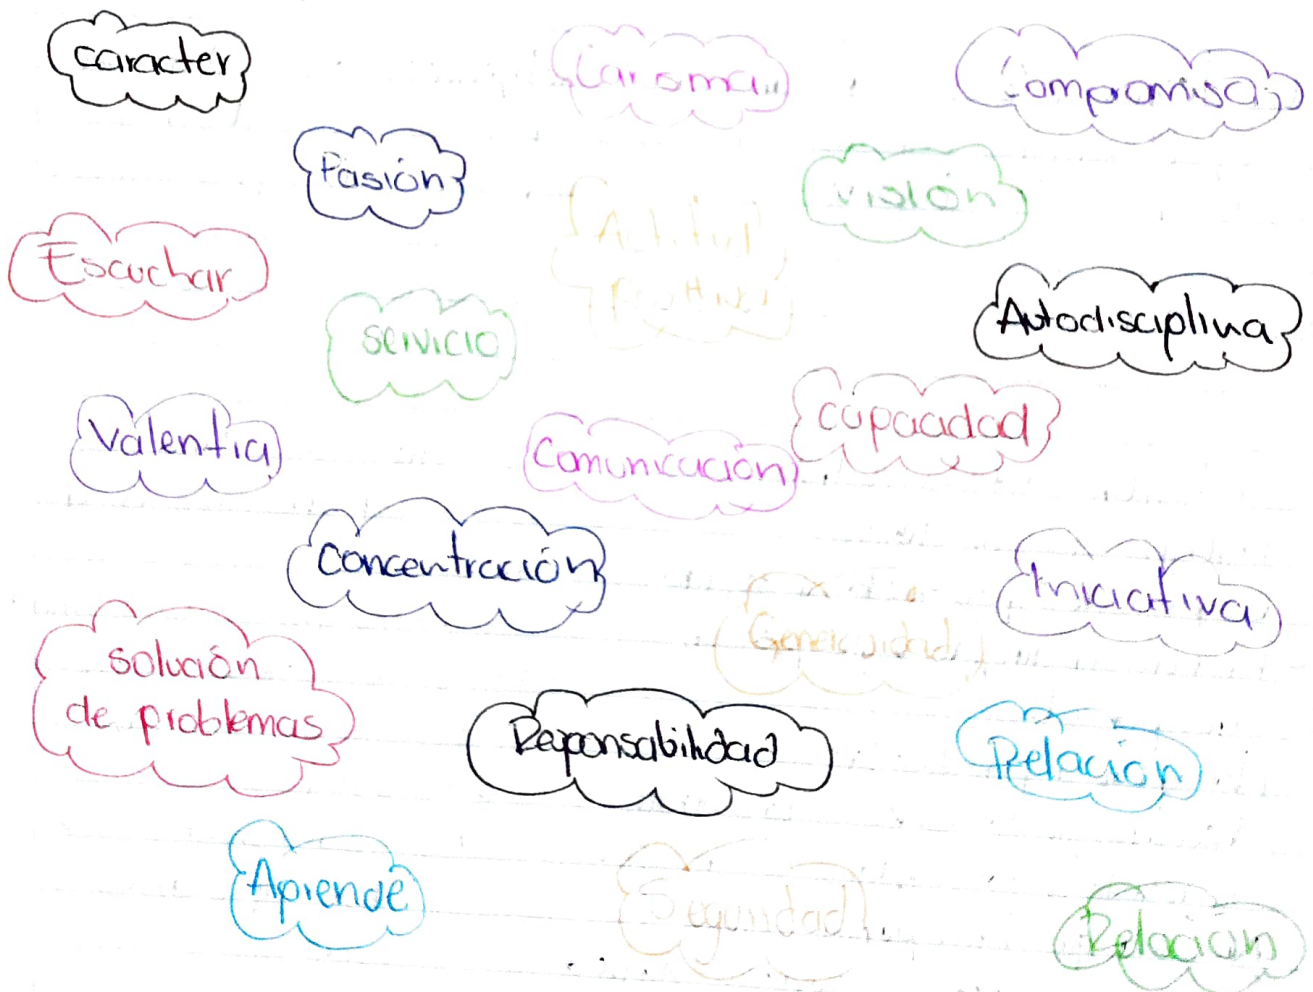 caracter
Carisma
Compromiso
Pasión
visión
Actitud
Positiva
Escuchar
Autodisciplina
servicio
capacidad
Valentia
Comunicación
Concentración
Iniciativa
Generosidad
solución
de problemas
Reponsabilidad
Relación
Aprende
Seguridad
Relación